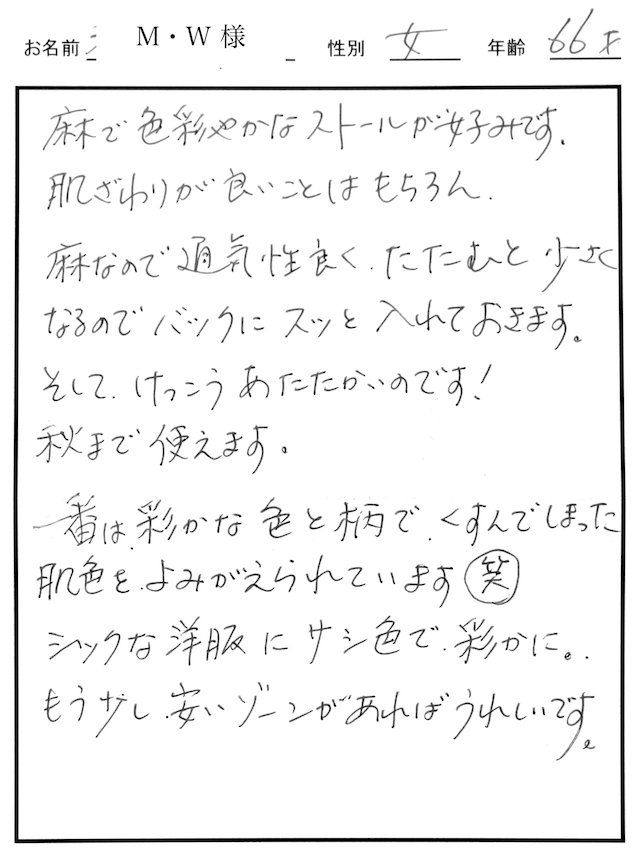 お名前 M・W 様 性別 女 年齢 66才
麻で色彩やかなストールが好みです.
肌ざわりが良いことはもちろん.
麻なので通気性良く.たたむと少さく
なるのでバックにスッと入れておきます。
そして.けっこうあたたかいのです!
秋まで使えます。
一番は.彩かな色と柄で.くすんでしまった
肌色を.よみがえられています㊗笑
シックな洋服にサシ色で.彩かに。.
もう少し.安いゾーンがあればうれしいです。